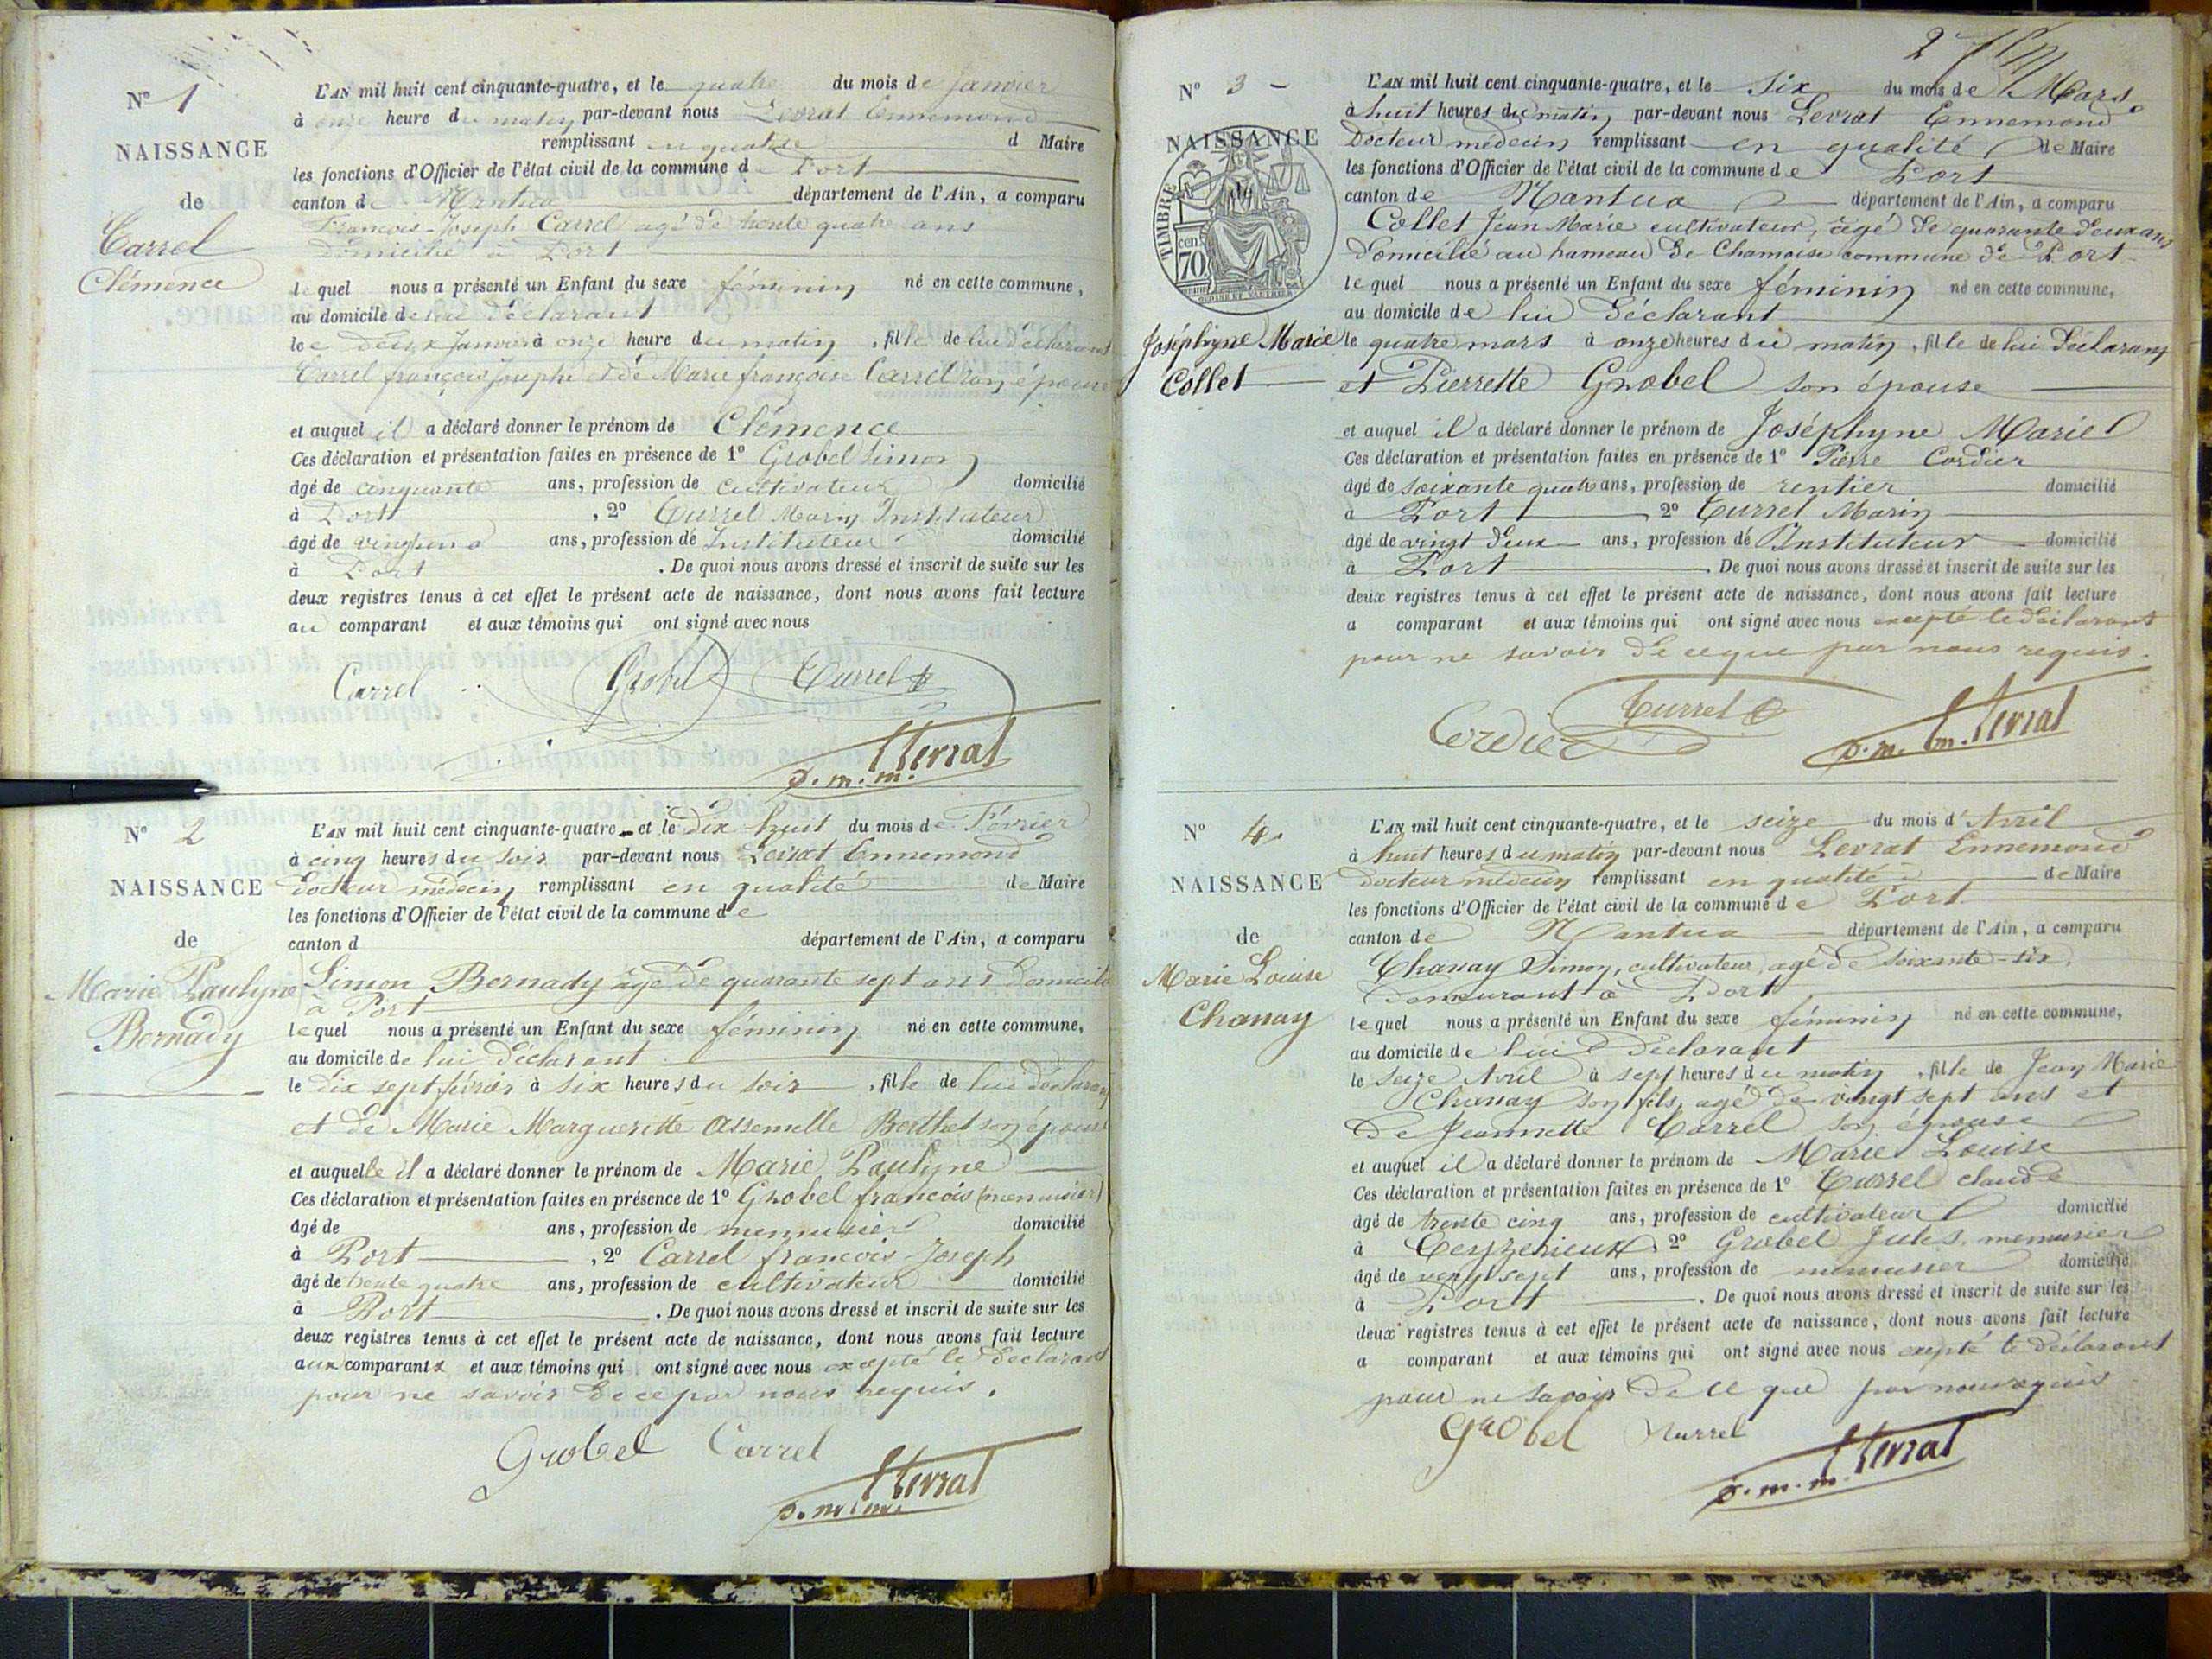 N° 1
NAISSANCE
de
Carrel
Clémence
L'AN mil huit cent cinquante-quatre, et le quatre du mois de Janvier
à onze heure du matin par-devant nous Levrat Ennemond
remplissant en qualité d Maire
les fonctions d'Officier de l'état civil de la commune de Port
canton d Nantua département de l'Ain, a comparu
François-Joseph Carrel agé de trente quatre ans
domicilié à Port
lequel nous a présenté un Enfant du sexe féminin né en cette commune,
au domicile de lui déclarant
le deux Janvier à onze heure du matin, fille de lui déclarant
Carrel françois Joseph et de Marie françoise Carrel son épouse
et auquel il a déclaré donner le prénom de Clémence
Ces déclaration et présentation faites en présence de 1° Grobel Simon
âgé de cinquante ans, profession de cultivateur domicilié
à Port, 2° Curret Marin Instituteur
âgé de vingt un ans, profession de Instituteur domicilié
à Port. De quoi nous avons dressé et inscrit de suite sur les
deux registres tenus à cet effet le présent acte de naissance, dont nous avons fait lecture
au comparant et aux témoins qui ont signé avec nous
Carrel Grobel Curret
d. m. m. Levrat
N° 2
NAISSANCE
de
Marie Paulyne
Bernady
L'AN mil huit cent cinquante-quatre et le dix huit du mois de Février
à cinq heures du soir par-devant nous Levrat Ennemond
docteur médecin remplissant en qualité de Maire
les fonctions d'Officier de l'état civil de la commune de
canton d département de l'Ain, a comparu
Simon Bernady âgé de quarante sept ans domicilié
à Port
lequel nous a présenté un Enfant du sexe féminin né en cette commune,
au domicile de lui déclarant
le dix sept février à six heures du soir, fille de lui déclarant
et de Marie Margueritte Berthet son épouse
et auquelle il a déclaré donner le prénom de Marie Paulyne
Ces déclaration et présentation faites en présence de 1° Grobel françois (menuisier)
âgé de ans, profession de menuisier domicilié
à Port, 2° Carrel françois Joseph
âgé de trente quatre ans, profession de cultivateur domicilié
à Port. De quoi nous avons dressé et inscrit de suite sur les
deux registres tenus à cet effet le présent acte de naissance, dont nous avons fait lecture
aux comparants et aux témoins qui ont signé avec nous excepté le déclarant
pour ne savoir de ce par nous requis.
Grobel Carrel
d. m. m. Levrat
2
N° 3 -
NAISSANCE
de
TIMBRE
70 cen.
Joséphyne Marie
Collet
L'AN mil huit cent cinquante-quatre, et le Six du mois de Mars
à huit heures du matin par-devant nous Levrat Ennemond
Docteur médecin remplissant en qualité de Maire
les fonctions d'Officier de l'état civil de la commune de Port
canton de Nantua département de l'Ain, a comparu
Collet Jean Marie cultivateur, âgé de quarante deux ans
domicilié au hameau de Chamoise commune de Port
lequel nous a présenté un Enfant du sexe féminin né en cette commune,
au domicile de lui déclarant
le quatre mars à onze heures du matin, fille de lui déclarant
et Pierrette Grobel son épouse
et auquel il a déclaré donner le prénom de Joséphyne Marie
Ces déclaration et présentation faites en présence de 1° Pierre Cordier
âgé de soixante quatre ans, profession de rentier domicilié
à Port 2° Curret Marin
âgé de vingt deux ans, profession de Instituteur domicilié
à Port. De quoi nous avons dressé et inscrit de suite sur les
deux registres tenus à cet effet le présent acte de naissance, dont nous avons fait lecture
a comparant et aux témoins qui ont signé avec nous excepté le déclarant
pour ne savoir de ce que par nous requis.
Cordier Curret
d. m. m. Levrat
N° 4
NAISSANCE
de
Marie Louise
Chanay
L'AN mil huit cent cinquante-quatre, et le seize du mois d'Avril
à huit heures du matin par-devant nous Levrat Ennemond
docteur médecin remplissant en qualité de Maire
les fonctions d'Officier de l'état civil de la commune de Port
canton de Nantua département de l'Ain, a comparu
Chanay Simon, cultivateur, agé de soixante-six,
demeurant à Port
lequel nous a présenté un Enfant du sexe féminin né en cette commune,
au domicile de lui déclarant
le seize Avril à sept heures du matin, fille de Jean Marie
Chanay son fils, agé de vingt sept ans et
de Jeannette Carrel son épouse
et auquel il a déclaré donner le prénom de Marie Louise
Ces déclaration et présentation faites en présence de 1° Curret claude
âgé de trente cinq ans, profession de cultivateur domicilié
à Ceyzerieux 2° Grobel Jules menuisier
âgé de vingt sept ans, profession de menuisier domicilié
à Port. De quoi nous avons dressé et inscrit de suite sur les
deux registres tenus à cet effet le présent acte de naissance, dont nous avons fait lecture
a comparant et aux témoins qui ont signé avec nous excepté le déclarant
pour ne savoir de ce que par nous requis
Grobel Curret
d. m. m. Levrat